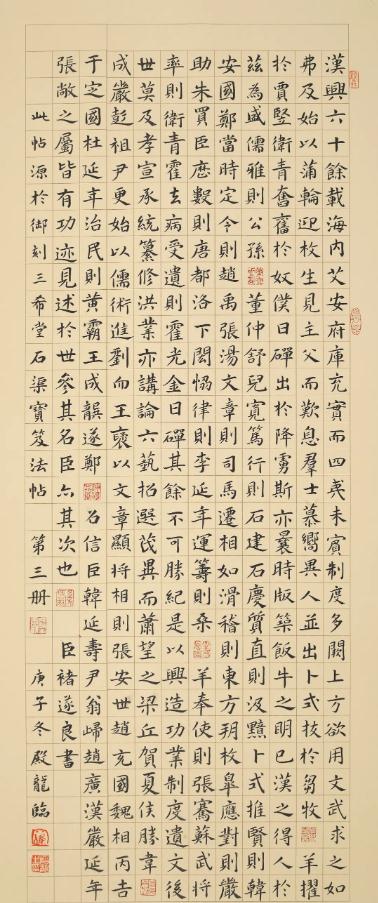 漢興六十餘載海内艾安府庫充實而四夷未賓制度多闕上方欲用文武求之如
弗及始以蒲輪迎枚生見主父而歎息群士慕嚮異人並出卜式拔於芻牧羊擢
於賈豎衛青奮舊於奴僕日磾出於降虜斯亦曩時版築飯牛之明已漢之得人於
茲為盛儒雅則公孫董仲舒兒寬篤行則石建石慶質直則汲黯卜式推賢則韓
安國鄭當時定令則趙禹張湯文章則司馬遷相如滑稽則東方朔枚皐應對則嚴
助朱買臣歷數則唐都洛下閎協律則李延年運籌則桑羊奉使則張騫蘇武將
率則衛青霍去病受遺則霍光金日磾其餘不可勝紀是以興造功業制度遺文後
世莫及孝宣承統纂修洪業亦講論六藝招選茂異而蕭望之梁丘賀夏侯勝韋
成嚴彭祖尹更始以儒術進劉向王襃以文章顯將相則張安世趙充國魏相丙吉
于定國杜延年治民則黄霸王成龔遂鄭召信臣韓延壽尹翁歸趙廣漢嚴延年
張敞之屬皆有功迹見述於世參其名臣亦其次也 臣褚遂良書
此帖源於御刻三希堂石渠寶笈法帖 第三册 庚子冬殿龍臨